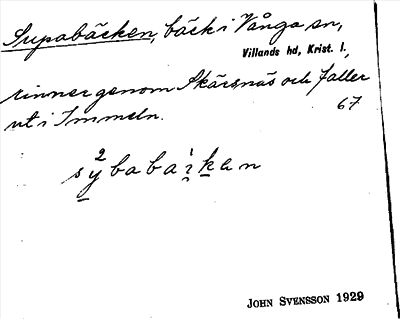 Supabäcken, bäck i Vånga sn,
Villands hd, Krist. l.,
rinner genom Skärsnäs och faller
ut i Immeln.
67
JOHN SVENSSON 1929